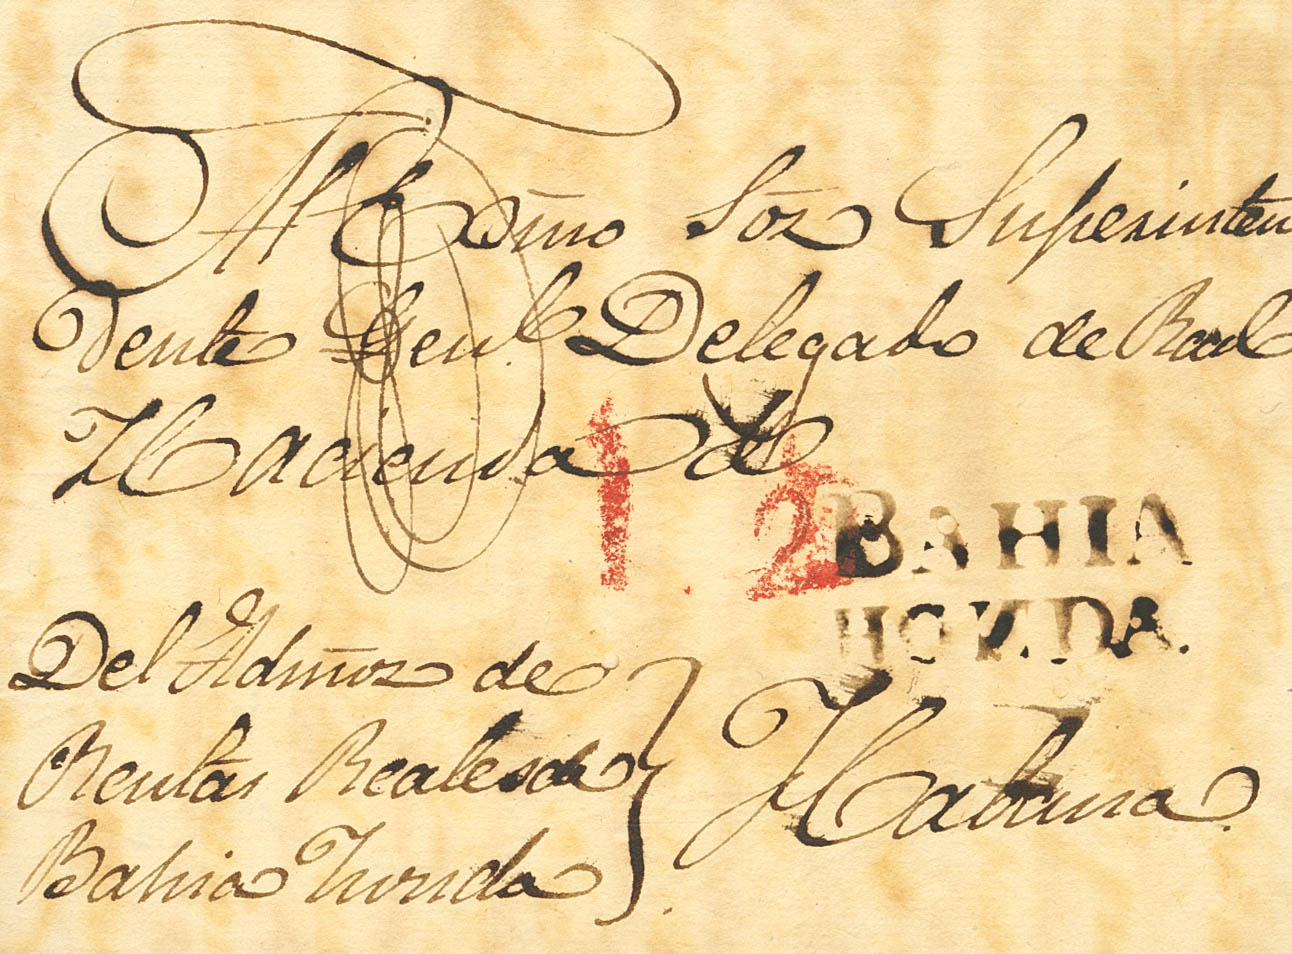 Al Exmo Sor Superinten
dente Genl. Delegado de Real
Hacienda de
1 2
BAHIA
HONDA.
Del Admor de
Rentas Reales de
Bahia Hunda
Habana.